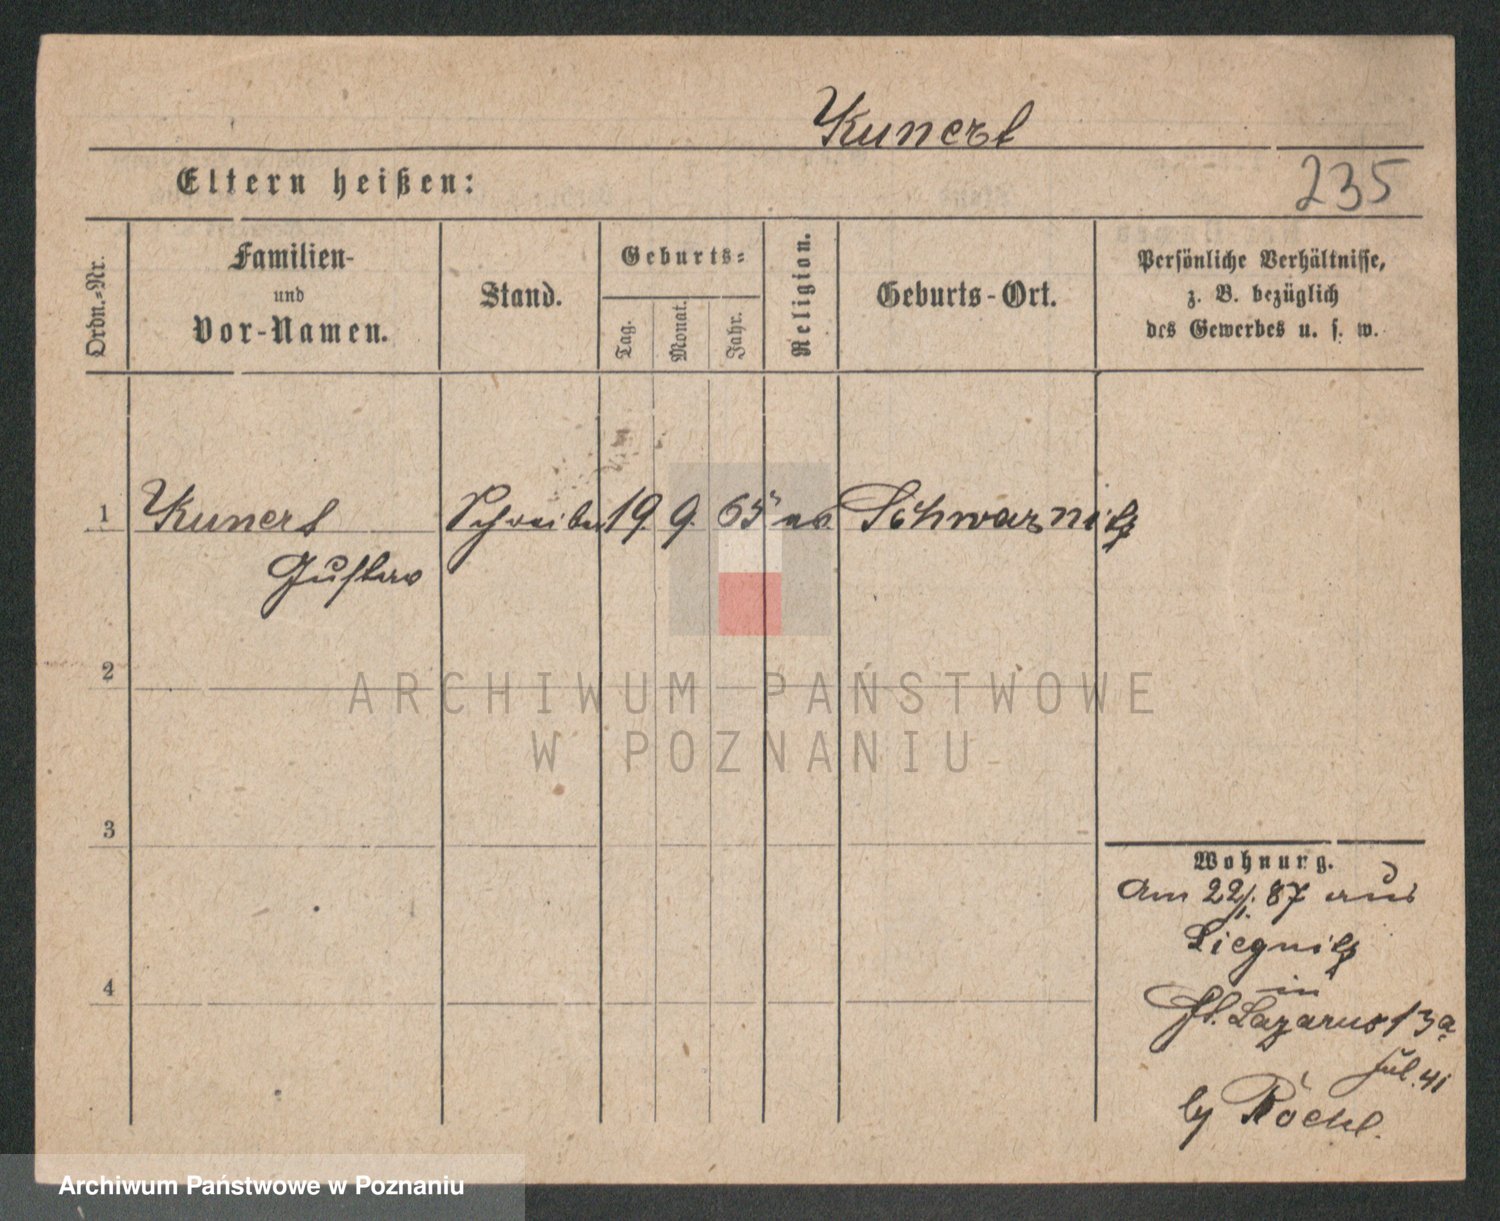 Kunert
Eltern heißen:
235
Ordn.-Nr.
Familien-
und
Vor-Namen.
Stand.
Geburts-
Tag.
Monat.
Jahr.
Religion.
Geburts-Ort.
Persönliche Verhältnisse,
z. B. bezüglich
des Gewerbes u. s. w.
1 Kunert Schreiber 19. 9. 65 ev. Schwarznitz
Gustav
2
ARCHIWUM PAŃSTWOWE
W POZNANIU
3
Wohnung.
Am 22/1. 87 aus
Liegnitz
in
4
St. Lazarus 13a
Jul. 41
by
Archiwum Państwowe w Poznaniu